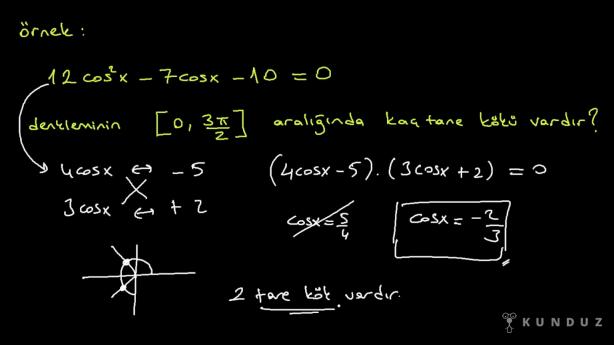 örnek :
12cos²x − 7cosx − 10 = 0
denkleminin [0, 3π/2] aralığında kaç tane kökü vardır?
4cosx ↔ − 5 (4cosx − 5) . (3cosx + 2) = 0
3cosx ↔ + 2 cosx = 5/4 cosx = −2/3
2 tane kök vardır.
KUNDUZ